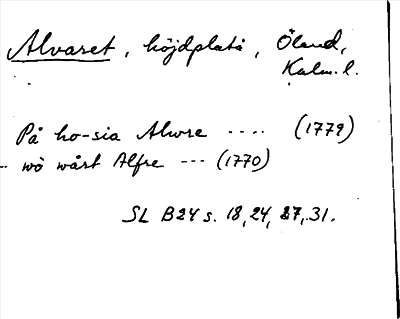 Alvaret, höjdplatå, Öland,
Kalm. l.
På ho-sia Alwre .... (1779)
-- wö wårt Alfre --- (1770)
SL B24 s. 18, 24, 27, 31.